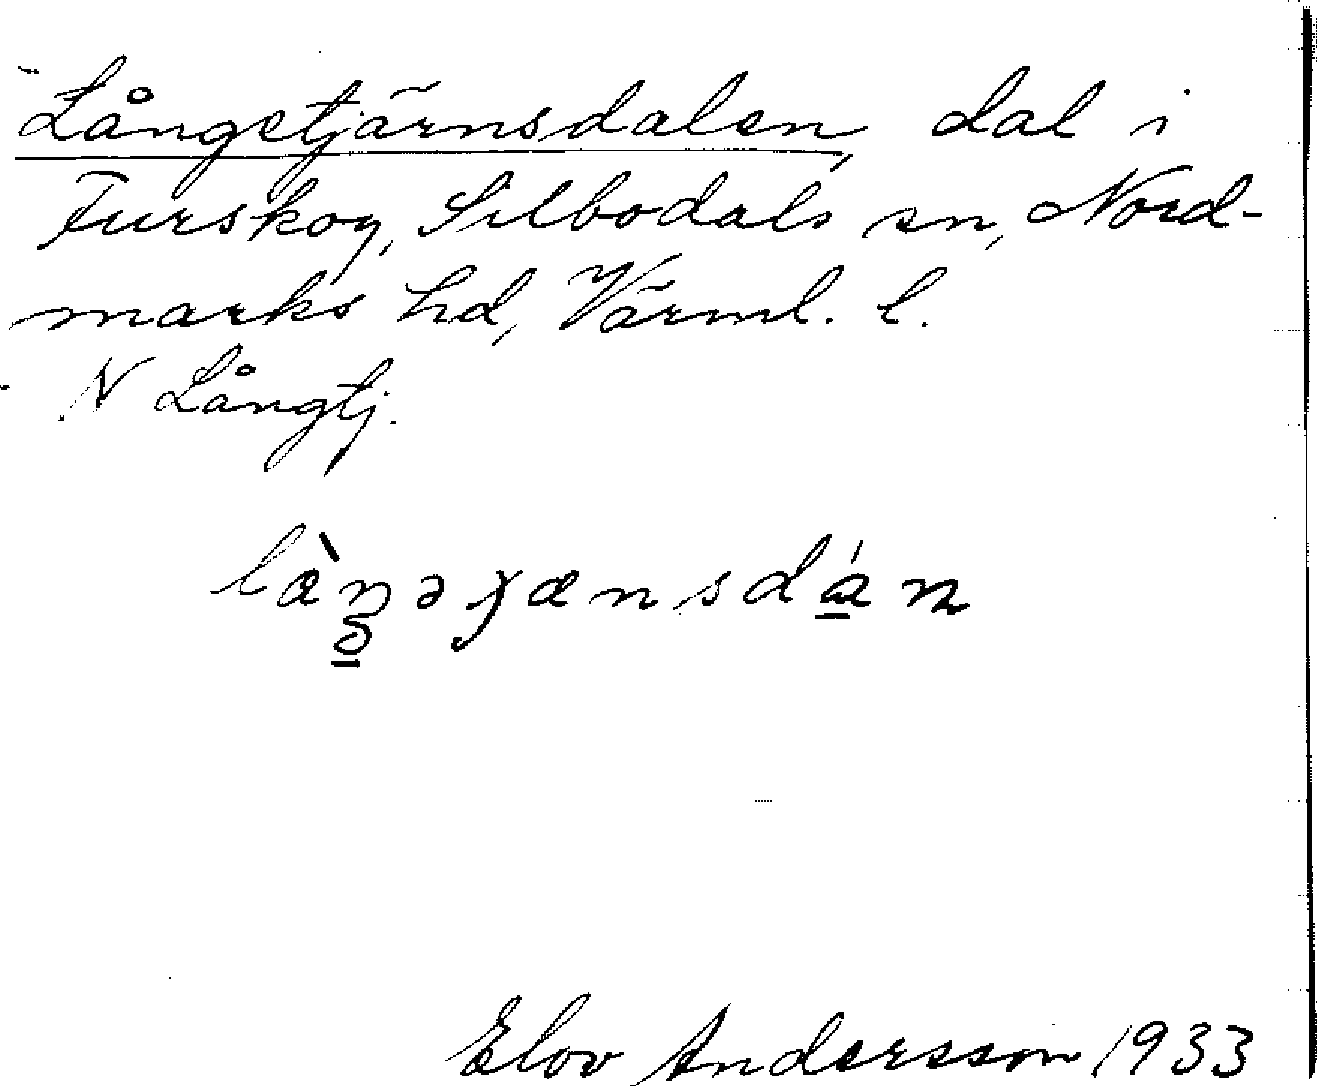 Långetjärnsdalen, dal i
Furskog, Silbodals sn, Nord-
marks hd, Värml. l.
N Långtj.
Elov Andersson 1933